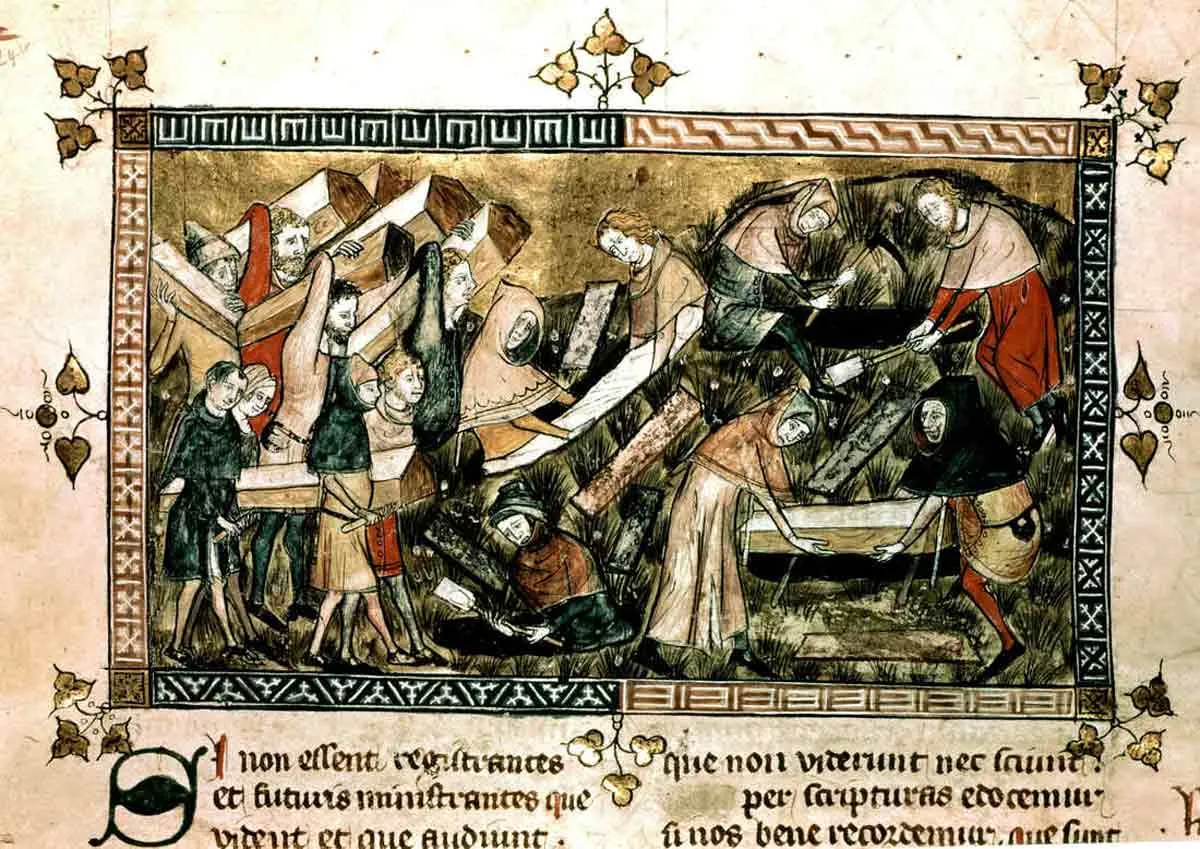 Si non essent registrantes
et futuris ministrantes que
vident et que audiunt.
que non viderunt nec sciunt.
per scripturas edocemur
si nos bene recordemur, que sunt